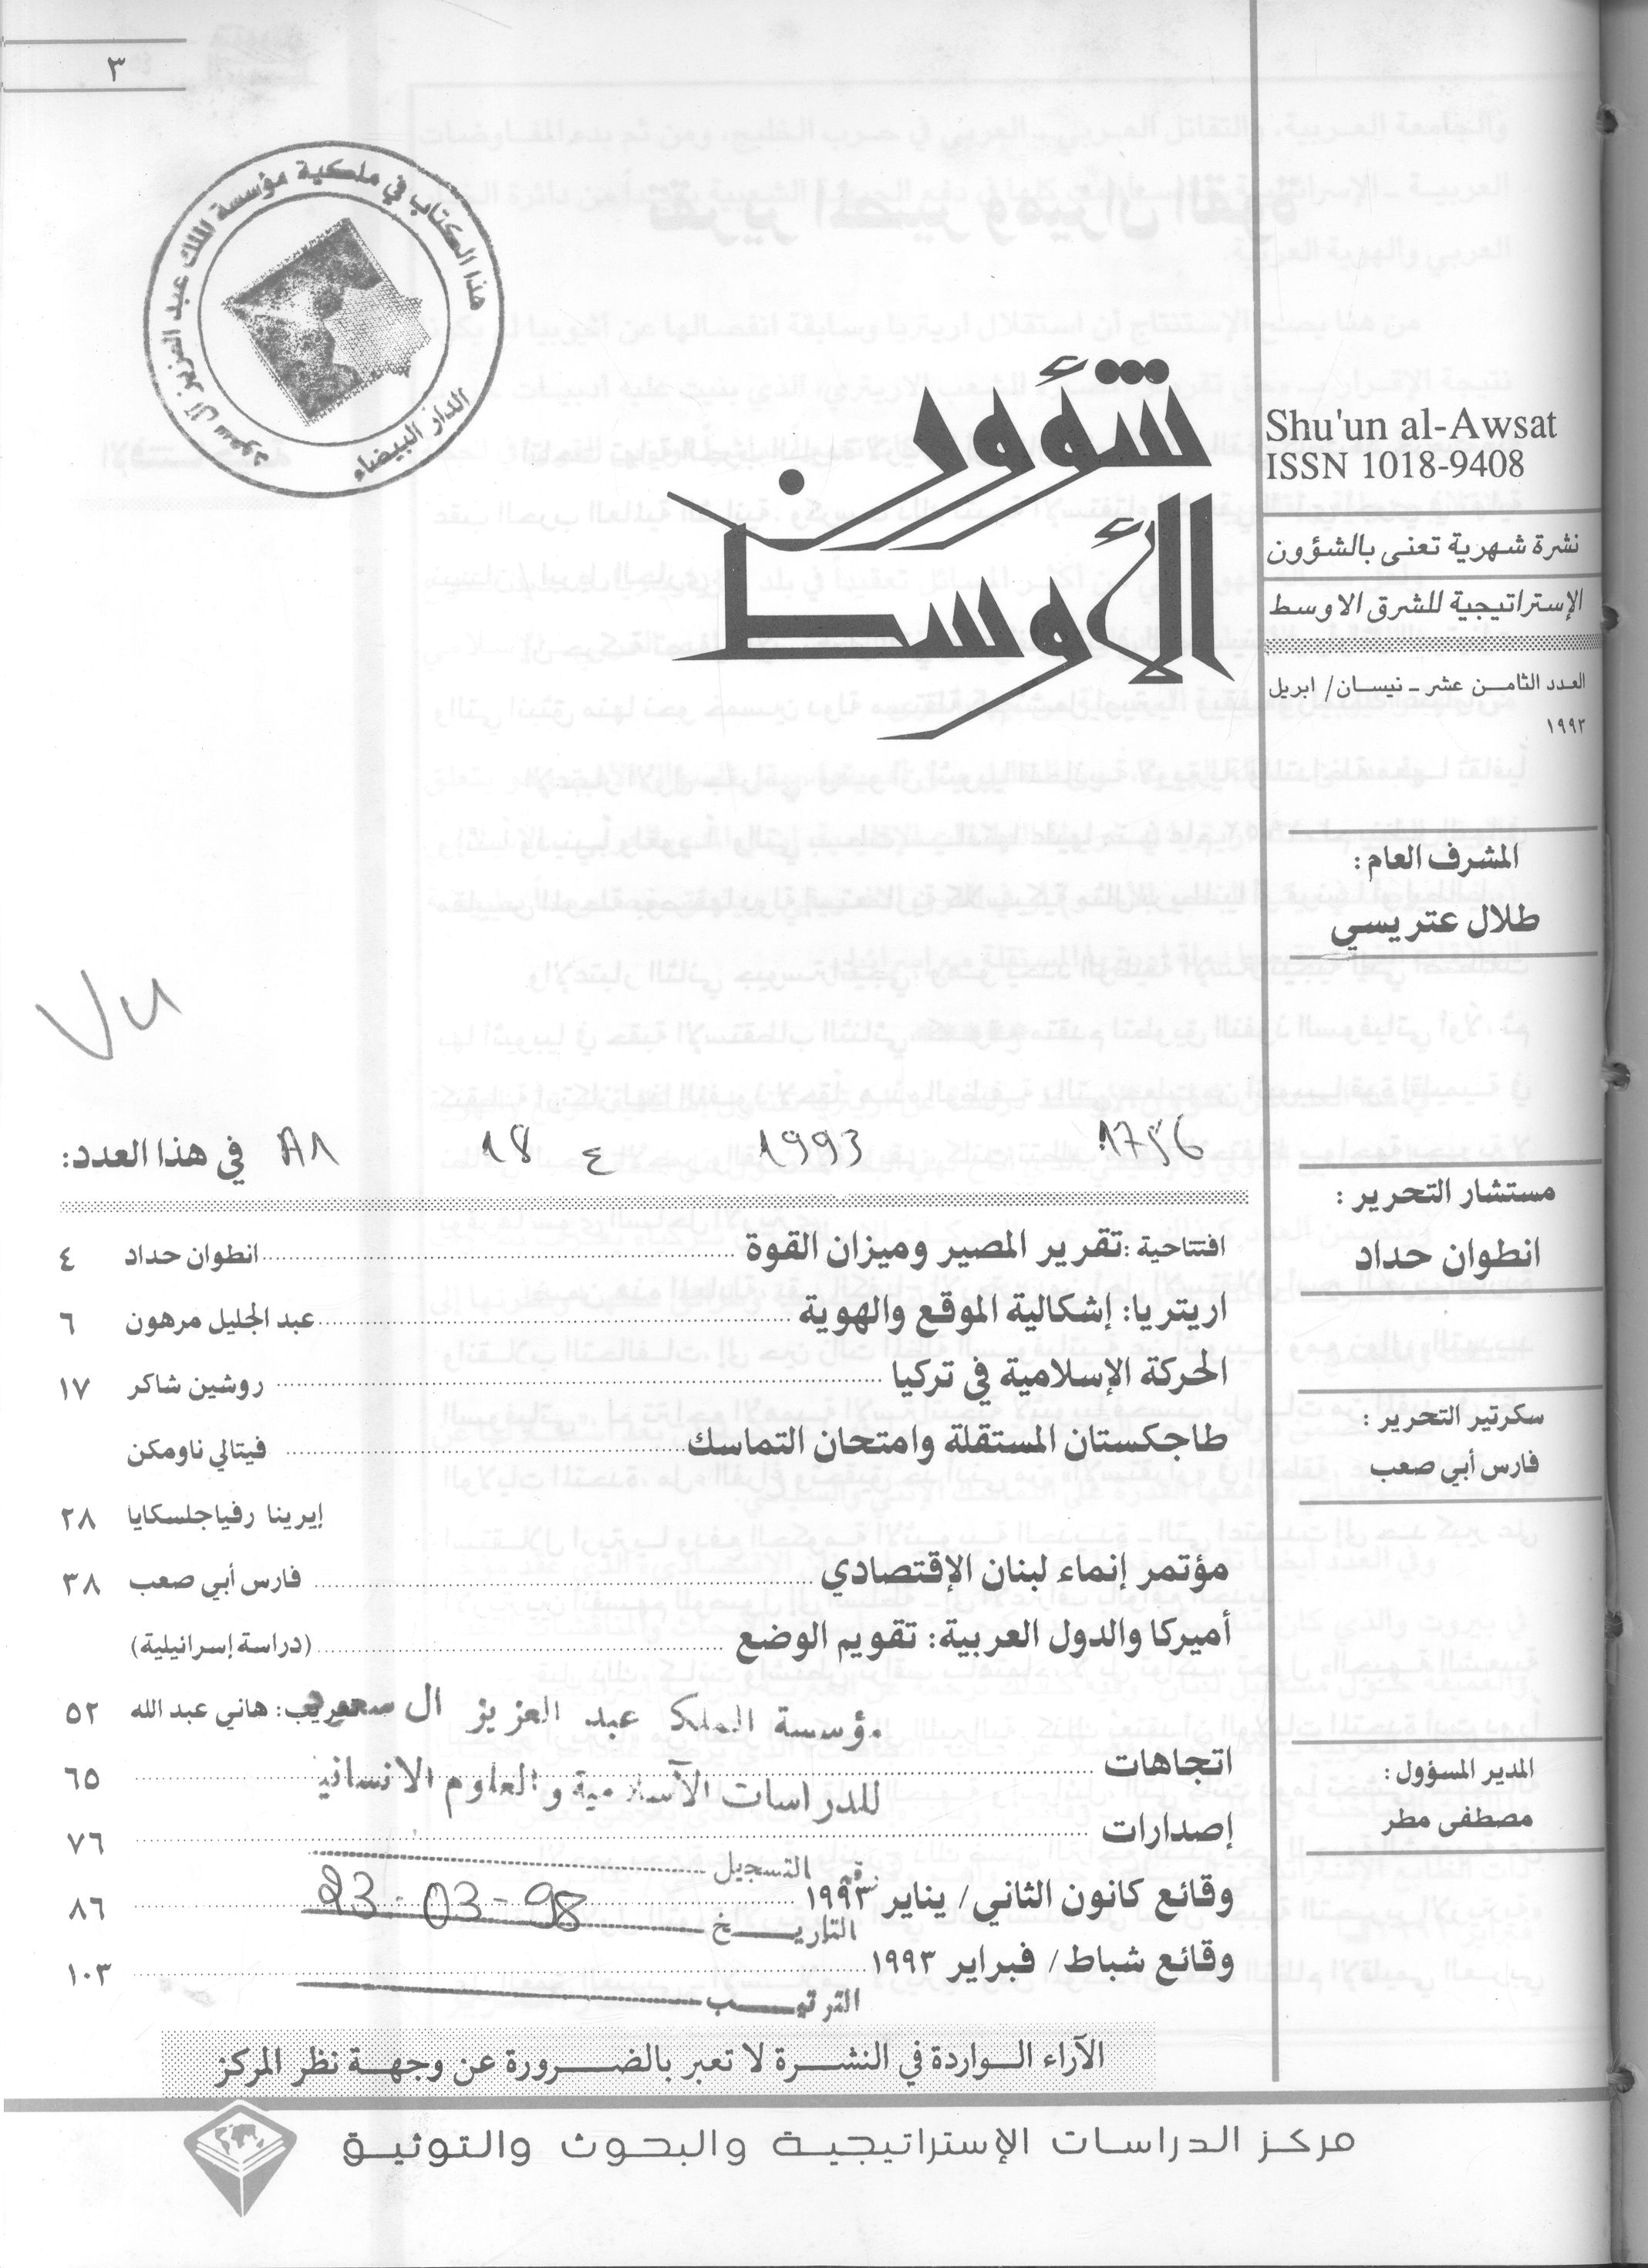 ٣
هذا الكتاب في ملكية مؤسسة الملك عبد العزيز آل سعود
الدار البيضاء
شؤون
الأوسط
Shu'un al-Awsat
ISSN 1018-9408
نشرة شهرية تعنى بالشؤون
الإستراتيجية للشرق الاوسط
العدد الثامن عشر - نيسان/ ابريل
١٩٩٣
المشرف العام:
طلال عتريسي
مستشار التحرير:
انطوان حداد
سكرتير التحرير:
فارس أبي صعب
المدير المسؤول:
مصطفى مطر
Vu
1756 1993 ع 18 A1
في هذا العدد:
افتتاحية: تقرير المصير وميزان القوة ... انطوان حداد ٤
اريتريا: إشكالية الموقع والهوية ... عبد الجليل مرهون ٦
الحركة الإسلامية في تركيا ... روشين شاكر ١٧
طاجكستان المستقلة وامتحان التماسك ... فيتالي ناومكن
إيرينا رفياجلسكايا ٢٨
مؤتمر إنماء لبنان الإقتصادي ... فارس أبي صعب ٣٨
أميركا والدول العربية: تقويم الوضع ... (دراسة إسرائيلية)
تعريب: هاني عبد الله ٥٢
مؤسسة الملك عبد العزيز ال سعود
اتجاهات ... ٦٥
للدراسات الاسلامية والعلوم الانسانية
إصدارات ... ٧٦
رقم التسجيل
وقائع كانون الثاني/ يناير ١٩٩٣ ... ٨٦
التاريخ 23-03-98
وقائع شباط/ فبراير ١٩٩٣ ... ١٠٣
الترتيب
الآراء الواردة في النشرة لا تعبر بالضرورة عن وجهة نظر المركز
مركز الدراسات الإستراتيجية والبحوث والتوثيق